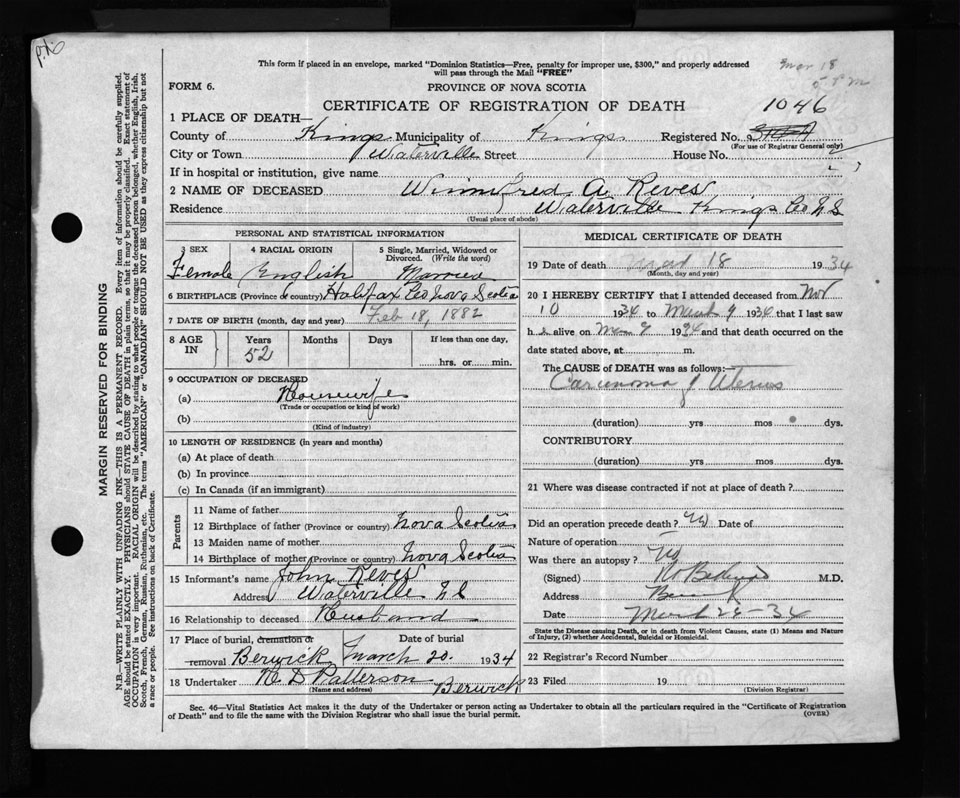 This form if placed in an envelope, marked "Dominion Statistics—Free, penalty for improper use, $300," and properly addressed
will pass through the Mail "FREE"
Mar 18
5 PM
FORM 6.
PROVINCE OF NOVA SCOTIA
CERTIFICATE OF REGISTRATION OF DEATH
1046
1 PLACE OF DEATH—
County of Kings Municipality of Kings Registered No.
(For use of Registrar General only)
City or Town Waterville Street House No.
If in hospital or institution, give name
2 NAME OF DECEASED Winnifred A. Reves
Residence Waterville Kings Co N S
(Usual place of abode)
PERSONAL AND STATISTICAL INFORMATION
3 SEX 4 RACIAL ORIGIN 5 Single, Married, Widowed or Divorced. (Write the word)
Female English Married
6 BIRTHPLACE (Province or country) Halifax Co Nova Scotia
7 DATE OF BIRTH (month, day and year) Feb 18, 1882
8 AGE IN Years Months Days If less than one day,
52 hrs. or min.
9 OCCUPATION OF DECEASED
(a) Housewife
(Trade or occupation or kind of work)
(b)
(Kind of industry)
10 LENGTH OF RESIDENCE (in years and months)
(a) At place of death
(b) In province
(c) In Canada (if an immigrant)
Parents
11 Name of father
12 Birthplace of father (Province or country) Nova Scotia
13 Maiden name of mother
14 Birthplace of mother (Province or country) Nova Scotia
15 Informant's name John Reves
Address Waterville N S
16 Relationship to deceased Husband
17 Place of burial, cremation or removal Berwick
Date of burial March 20. 1934
18 Undertaker N D Patterson Berwick
(Name and address)
MEDICAL CERTIFICATE OF DEATH
19 Date of death 18 1934
(Month, day and year)
20 I HEREBY CERTIFY that I attended deceased from Nov
10 1934 to March 9 1934 that I last saw
h alive on Mar 9 1934 and that death occurred on the
date stated above, at m.
The CAUSE of DEATH was as follows:—
Carcinoma of Uterus
(duration) yrs mos dys.
CONTRIBUTORY
(duration) yrs mos dys.
21 Where was disease contracted if not at place of death?
Did an operation precede death? No Date of
Nature of operation
Was there an autopsy? No
(Signed) M.D.
Address
Date March 28-34
State the Disease causing Death, or in death from Violent Causes, state (1) Means and Nature
of Injury, (2) whether Accidental, Suicidal or Homicidal.
22 Registrar's Record Number
23 Filed 19
(Division Registrar)
Sec. 46—Vital Statistics Act makes it the duty of the Undertaker or person acting as Undertaker to obtain all the particulars required in the "Certificate of Registration
of Death" and to file the same with the Division Registrar who shall issue the burial permit.
(OVER)
MARGIN RESERVED FOR BINDING
N.B.—WRITE PLAINLY WITH UNFADING INK—THIS IS A PERMANENT RECORD. Every item of information should be carefully supplied.
AGE should be stated EXACTLY. PHYSICIANS should STATE CAUSE OF DEATH in plain terms, so that it may be properly classified. Exact statement of
OCCUPATION is very important. RACIAL ORIGIN will be described by stating to what people or tongue the deceased person belonged, whether English, Irish,
Scotch, French, German, Russian, Ruthenian, etc. The terms "AMERICAN" or "CANADIAN" SHOULD NOT BE USED as they express citizenship but not
a race or people. See instructions on back of Certificate.